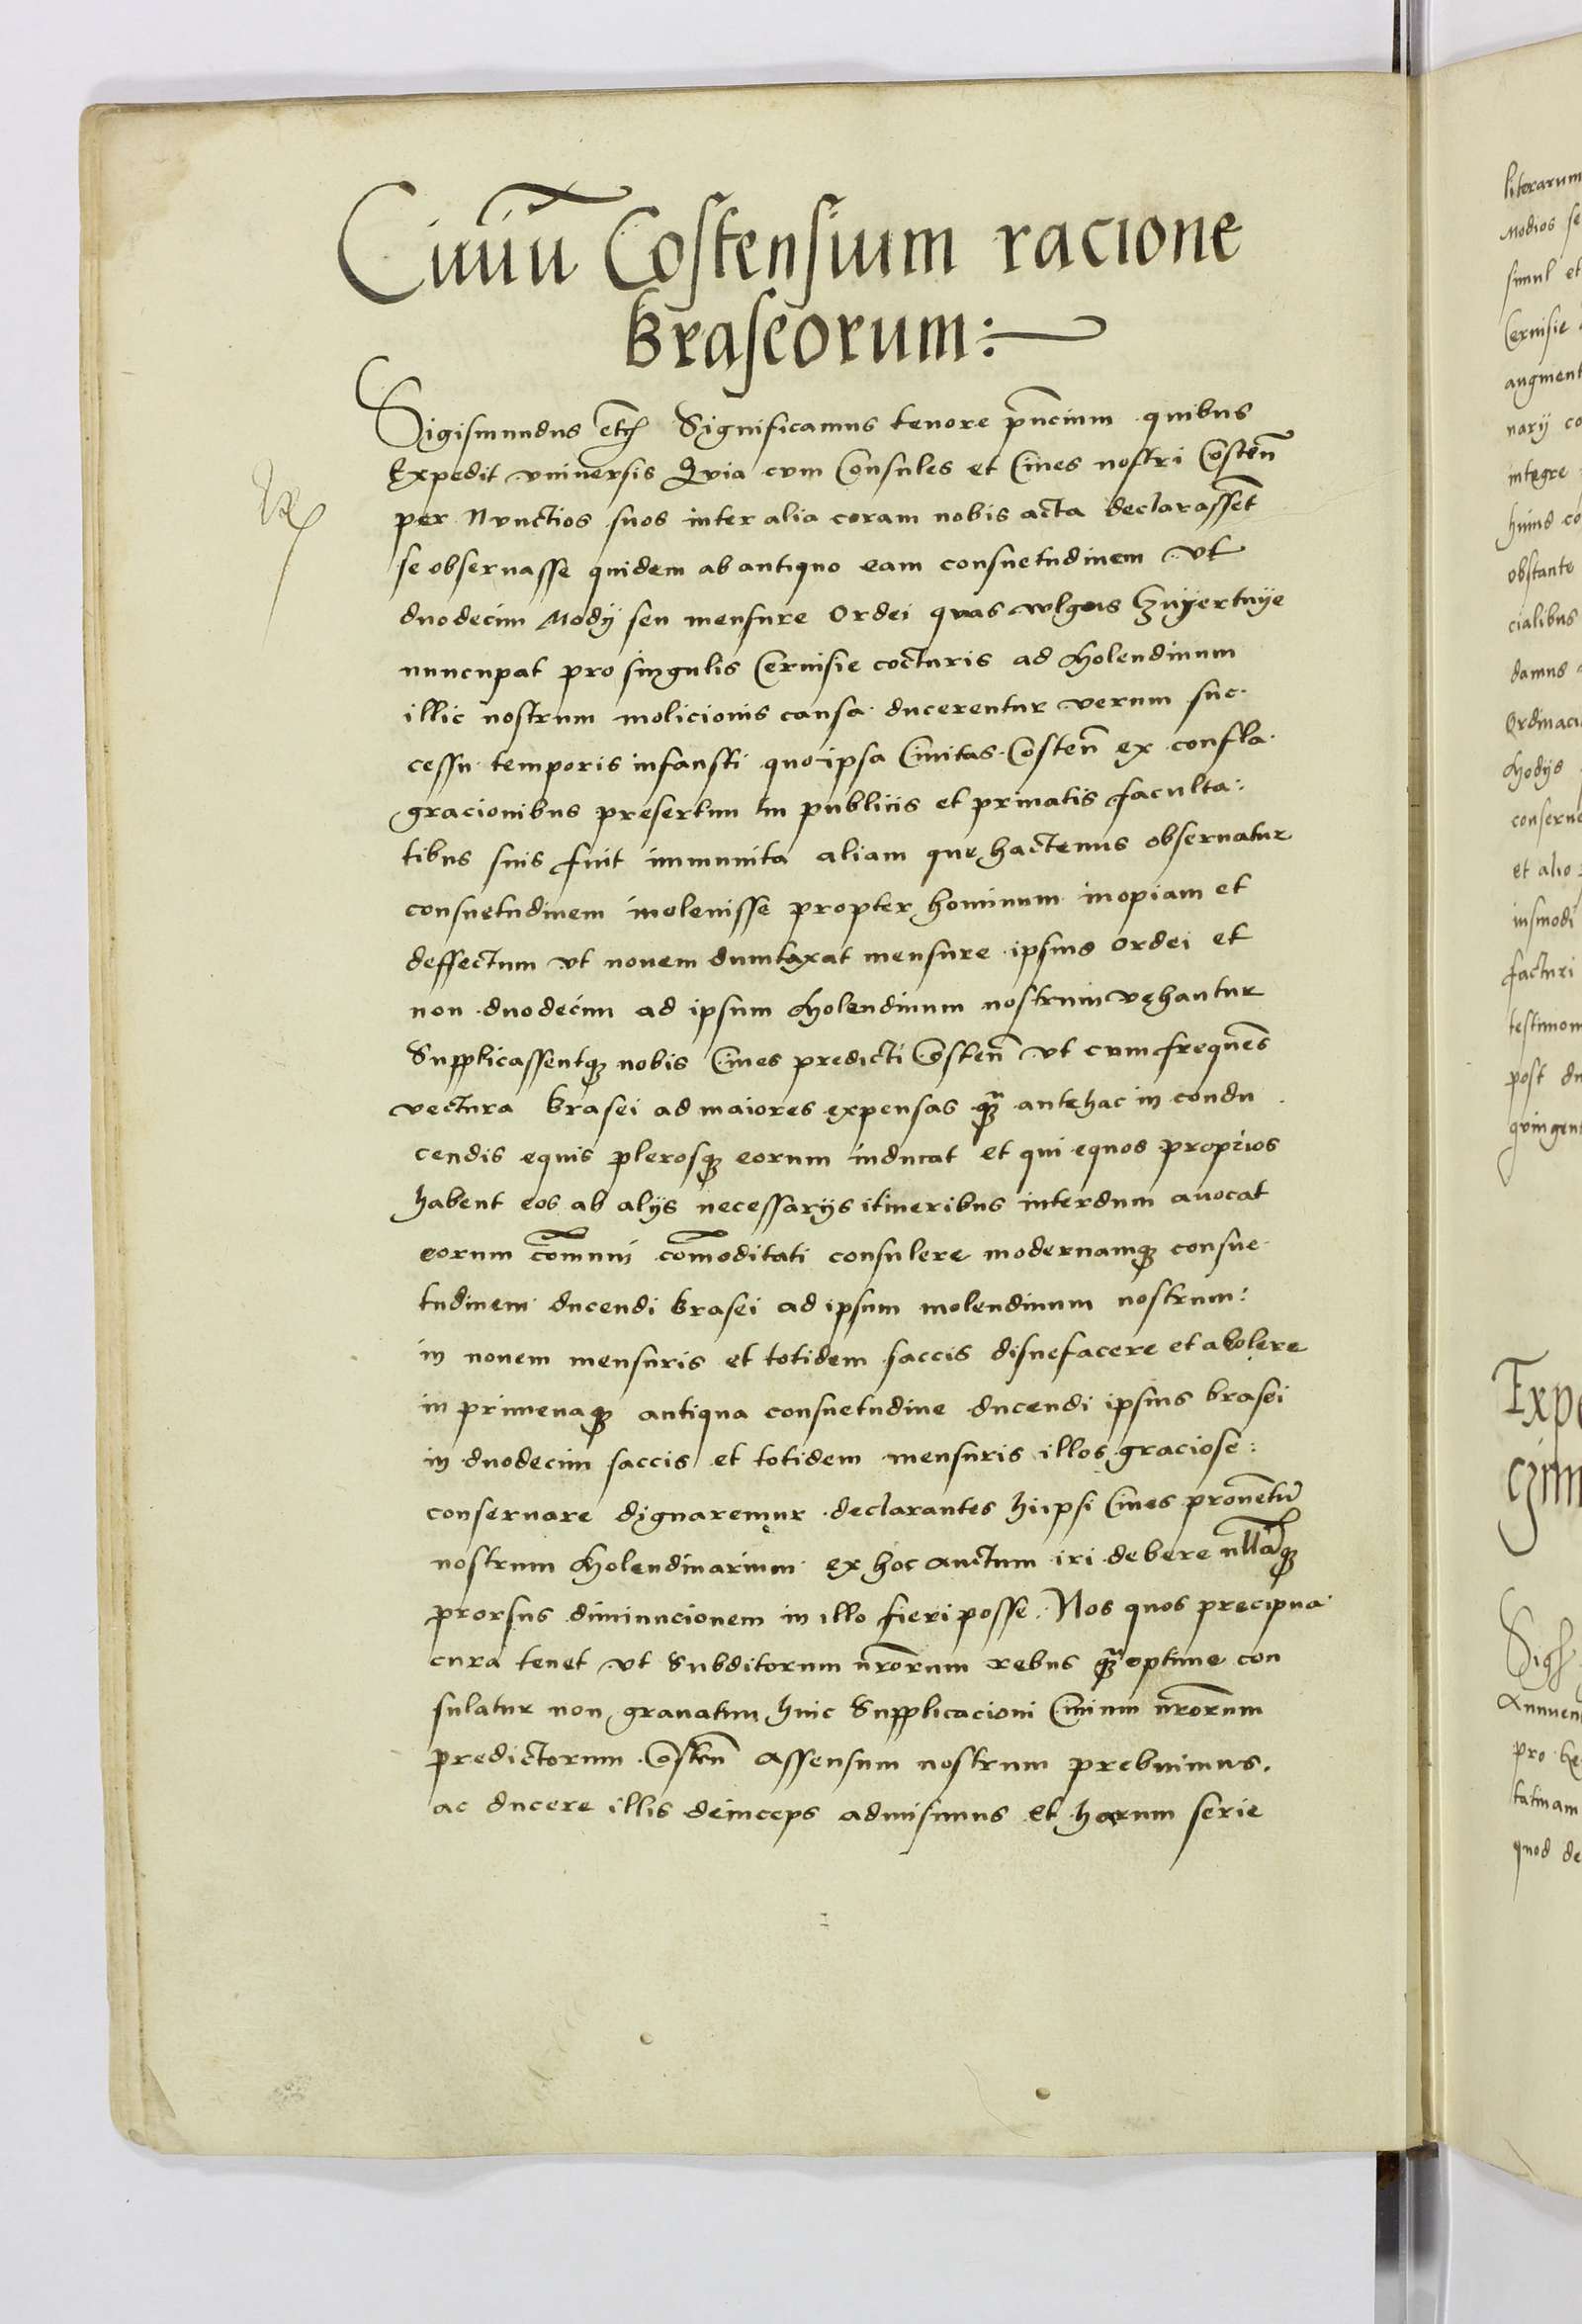 Ciuiū Costensium racione
braseorum:
Sigismundus etc̄ Significamus tenore pn̄cium quibus
Expedit vniuersis Quia cum Consules et Ciues nostri Costen̄
per Nunctios suos inter alia coram nobis acta declarassēt
se obseruasse quidem ab antiquo eam consuetudinem Vt
duodecim Modij seu mensure Ordei quas wlgus
nuncupat pro singulis Ceruisie cocturis ad Molendinum
illic nostrum molicionis causa ducerentur verum suc
cessu temporis infausti quo ipsa Ciuitas Costen̄ ex confla
gracionibus presertim in publicis et priuatis faculta:
tibus suis fuit imminuta aliam que hactenus obseruatur
consuetudinem inoleuisse propter hominum inopiam et
deffectum vt nouem dumtaxat mensure ipsius ordei et
non duodecim ad ipsum Molendinum nostrum vehantur
Supplicassentqʒ nobis Ciues predicti Costen̄ vt cum frequēs
vectura brasei ad maiores expensas qʒ̄ antehac in condu
cendis equis plerosqʒ eorum inducat et qui equos proprios
habent eos ab alijs necessarijs itineribus interdum auocat
eorum cōmuni cōmoditati consulere modernamqʒ consue
tudinem ducendi brasei ad ipsum molendinum nostrum:
in nouem mensuris et totidem saccis disuefacere et abolere
in primeuaqʒ antiqua consuetudine ducendi ipsius brasei
in duodecim saccis et totidem mensuris illos graciose:
conseruare dignaremur declarantes hi ipsi Ciues prouētū
nostrum Molendinarium ex hoc auctum iri debere nullāqʒ
prorsus diminucionem in illo fieri posse. Nos quos precipua
cura tenet vt Subditorum nr̄orum rebus qʒ̄ optime con
sulatur non grauatim huic Supplicacioni Ciuium nr̄orum
predictorum Costen̄ assensum nostrum prebuimus.
ac ducere illis deinceps admisimus et harum serie
literarum
Modios
simul et
Ceruisie
augment
narij co
integre
obstante
cialibus
damus
Ordinaci
Modijs
conserue
et alio
iusmodi
facturi
testimon
post du
quingent
Expe
Annuen
pro
quod de